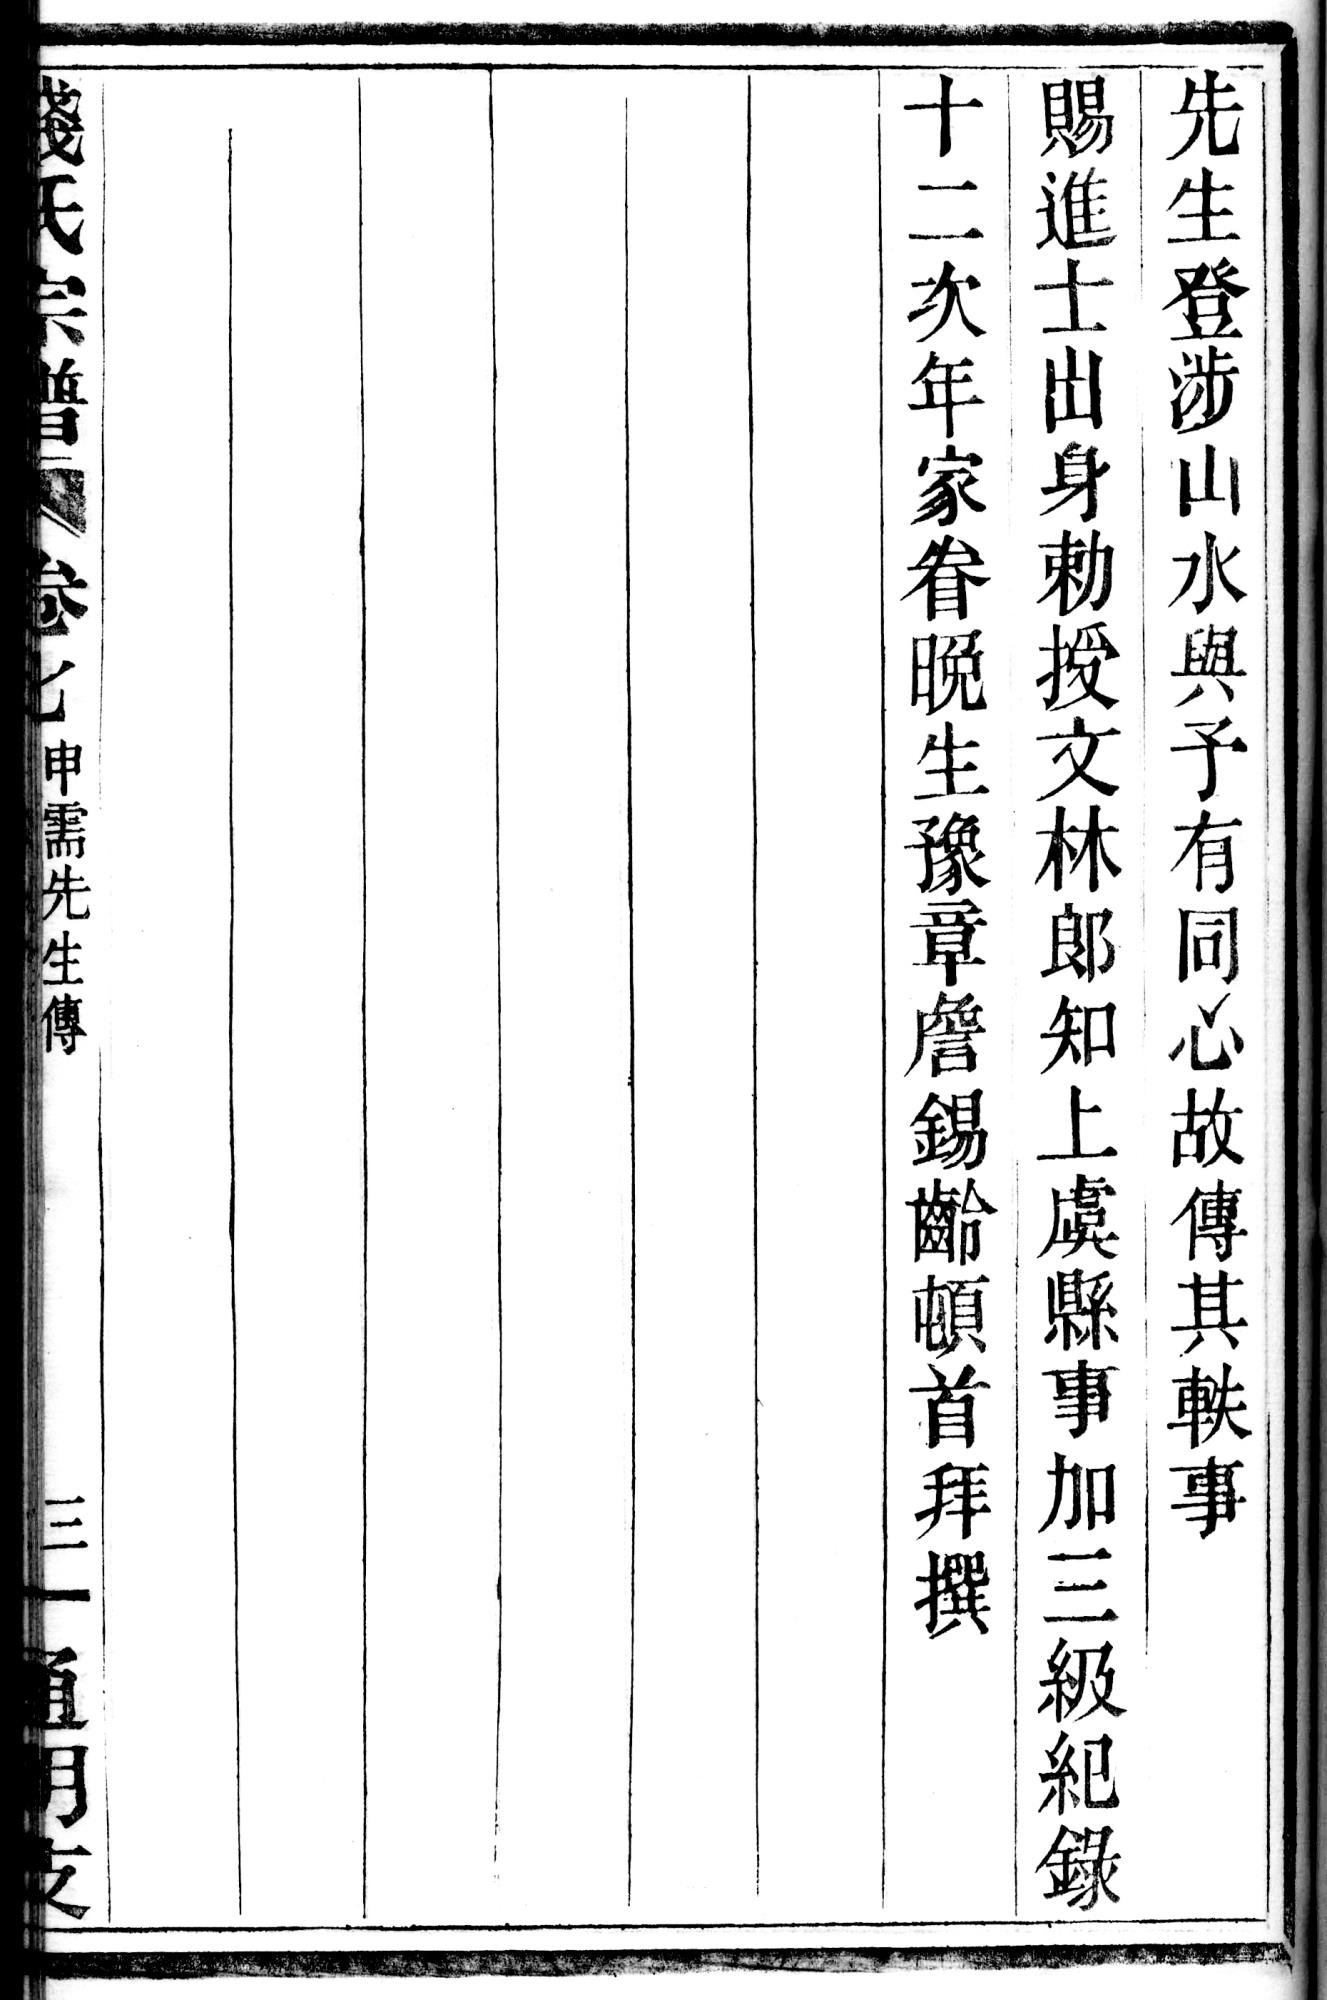 先生登涉山水與予有同心故傳其軼事
賜進士出身勅授文林郎知上虞縣事加三級紀錄
十二次年家眷晚生豫章詹錫齡頓首拜撰
錢氏宗譜 卷之 申霱先生傳 三一 通明支